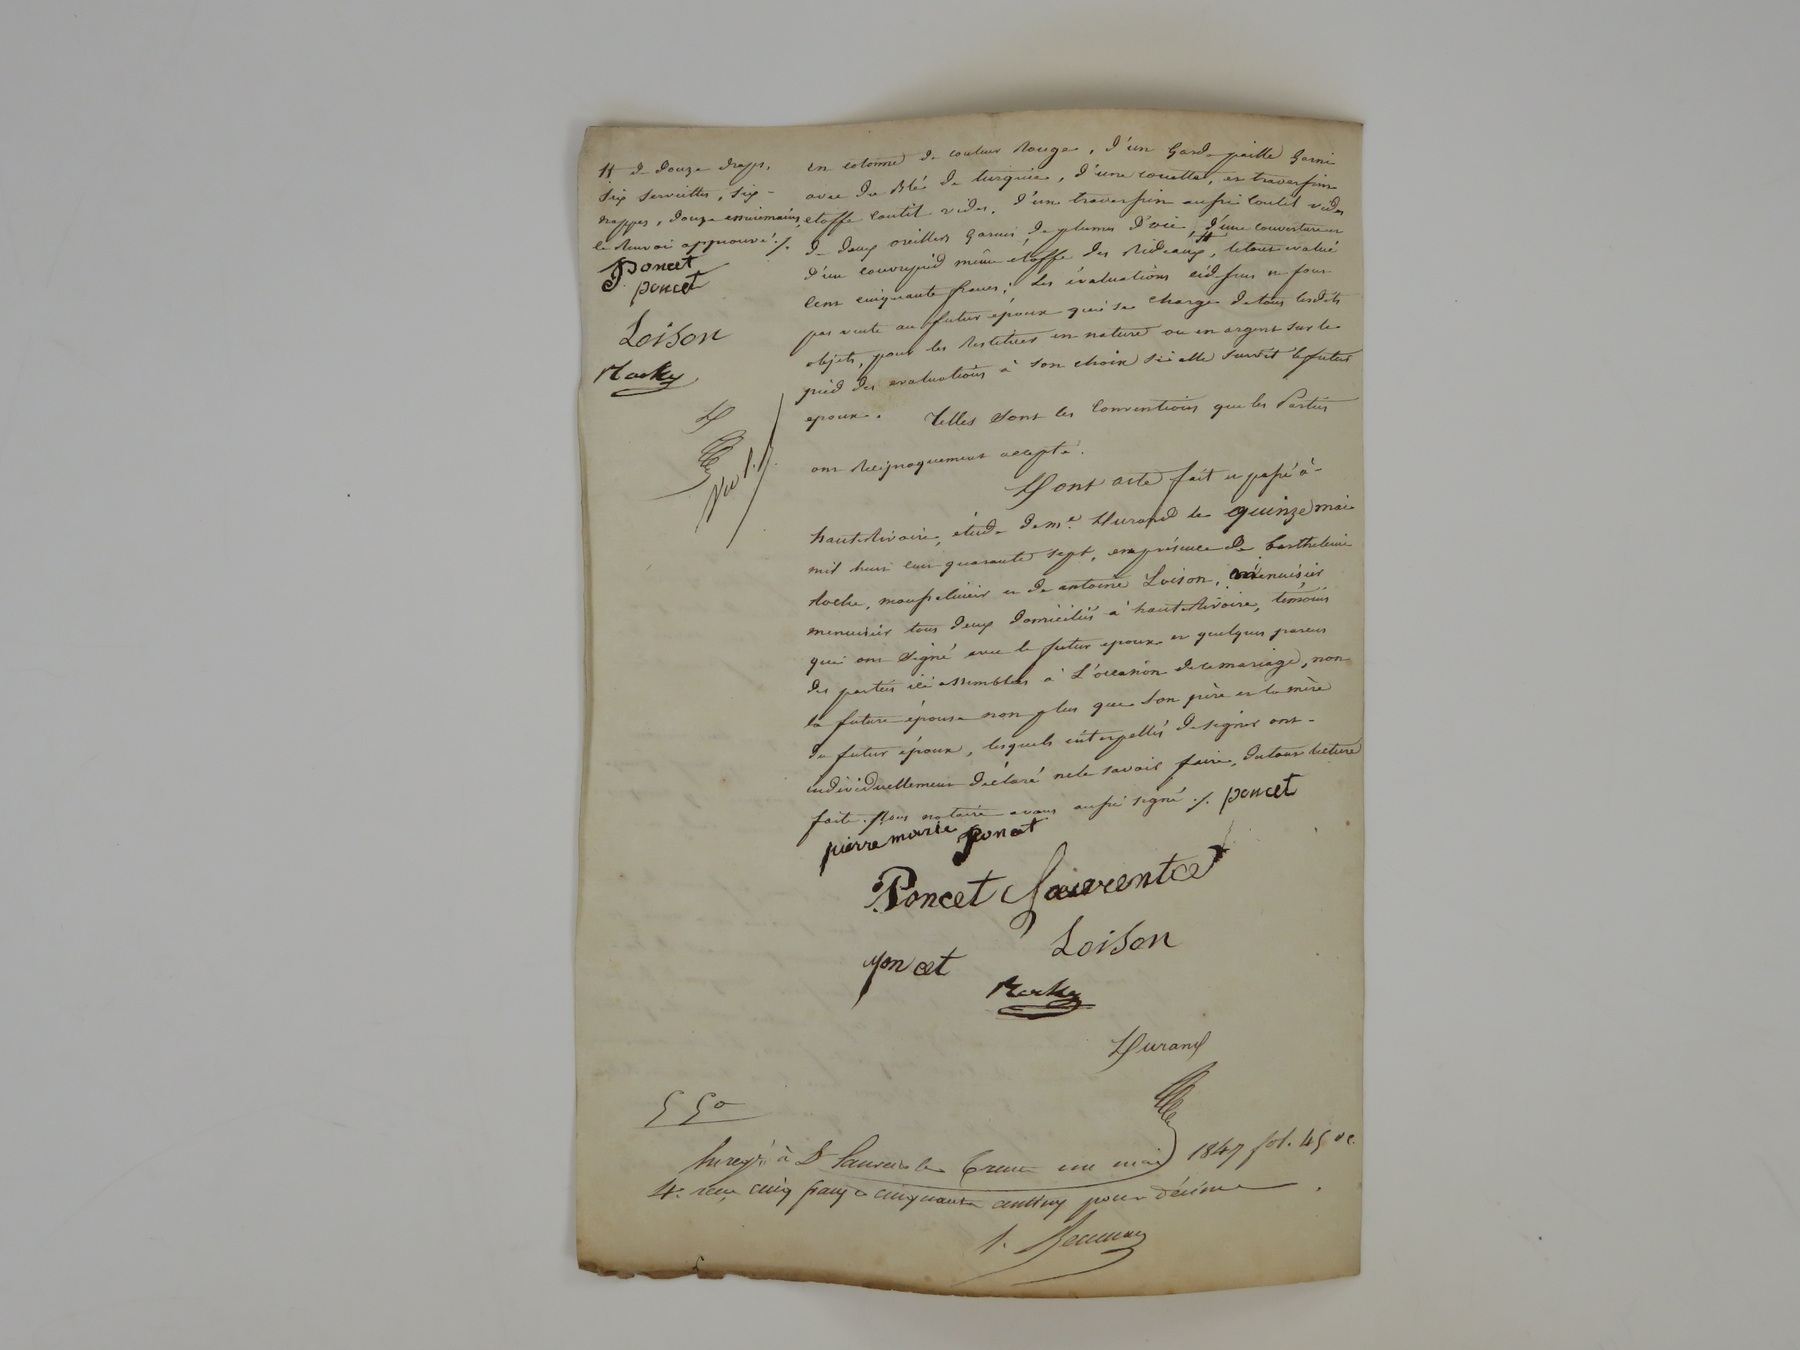 # de douze draps,
six serviettes, six
nappes, douze essuiemains,
le renvoi approuvé ./.
Poncet
poncet
Loison
Rochy
D
en cotonne de couleur rouge, d'un garde paille garni
avec du blé de turquie, d'une couette, et traversin
etoffe coutil vides, d'un traversin aussi coutil vides
de deux oreillers garnis de plumes d'oie, # d'une couverture et
d'un couvrepied même etoffe des rideaux, le tout evalué
cent cinquante francs; les évaluations cidessus ne font
pas vente au futur époux qui se charge de tous lesdits
objets, pour les restituer en nature ou en argent sur le
pied des evaluations à son choix si elle survit le futur
epoux. Telles sont les conventions que les Parties
ont réciproquement accepté.
Dont acte fait et passé à
hauterivoire, étude de me. Durand le quinze mai
mil huit cent quarante sept, en présence de barthelemi
Roche, et de antoine Loison, menuisier
menuisier tous deux domiciliés à hauterivoire, temoins
qui ont signé avec le futur epoux et quelques parens
des parties ici assemblés à l'occasion de ce mariage, non
la future épouse non plus que son père et la mère
du futur époux, lesquels interpellés de signer ont
individuellement déclaré ne le savoir faire, du tout lecture
faite. Nous notaire avons aussi signé ./. poncet
pierre marie poncet
Poncet Laurent
poncet Loison
Rochy
Durand
5 50
Enregé. à St Laurent le trente un mai 1847 fol. 45 vo c.
4. reçu cinq francs cinquante centimes pour décime